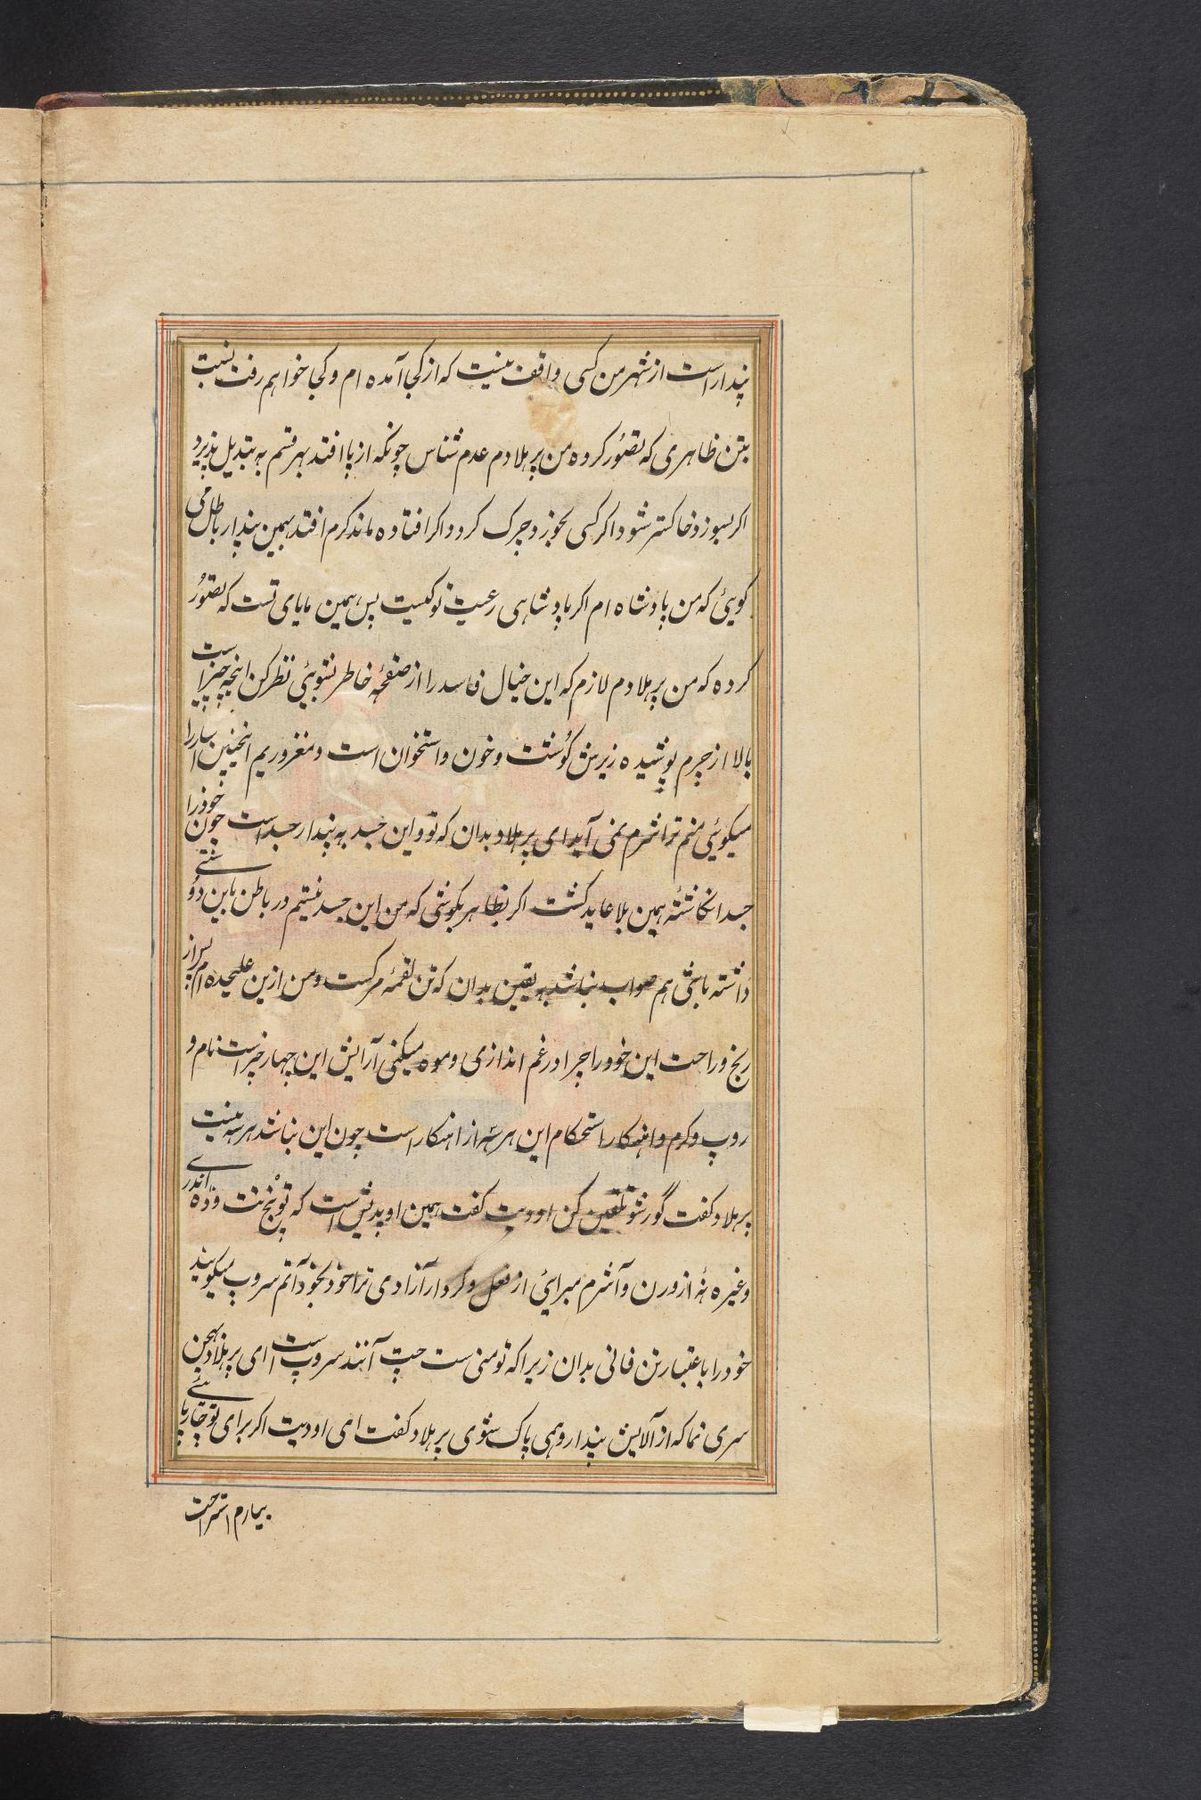 پندار است از شهر من کسی واقف نیست که از کجا آمده ام و کجا خواهم رفت نسبت
بتن ظاهری که تصوّر کرده من پرهلادم عدم شناس چونکه از پا افتد بهر قسم به تبدیل پذیرد
اکر بسوزد خاکستر شود اکر کسی بخورد چرک کردد اکر افتاده ماند کرم افتد بهمین پندار باطل می
کوئی که من پادشاه ام اکر پادشاهی رعیت تو کیست پس همین مایای تست که تصوّر
کرده که من پرهلادم لازم که این خیال فاسد را از صفحهٔ خاطر بشوئی نظر کن اینچه چیز است
بالا از چرم پوشیده زیرش کوشت و خون و استخوان است و مغروریم اینچنین اسباب را
میکوئی منم ترا شرم نمی آید ای پرهلاد بدان که تو و این جسد به پندار جسد است چون خود را
جسد انکاشتهٔ همین بلا عاید کشت اکر بظاهر بکوشی که من این جسد نیستم در باطن باین دوستی
داشته باشی هم صواب نباشد به یقین بدان که تن لقمهٔ مرکست و من ازین علیحده ام پس از
رنج و راحت این خود را چرا در غم اندازی و موه میکنی آرایش این چهار چیز است نام و
روپ و کرم و اهنکار استحکام این هر سه از اهنکار است چون این نباشد هر سه نیست
پرهلاد کفت گور شو تلقین کن اودیت کفت همین اوپدیش است که تو پنج تت و ده اندری
وغیره نهٔ از ورن و آشرم مبرائی از فعل و کردار آزادی ترا خود بخود آتم سروپ میکویند
خود را باعتبار تن فانی بدان زیرا که تومنی ست چت آنند سروپ است ای پرهلاد بهجن
سری نما که از آلایش پندار وهمی پاک شوی پرهلاد کفت ای اودیت اکر برای تو چارپائی
بیارم استراحت